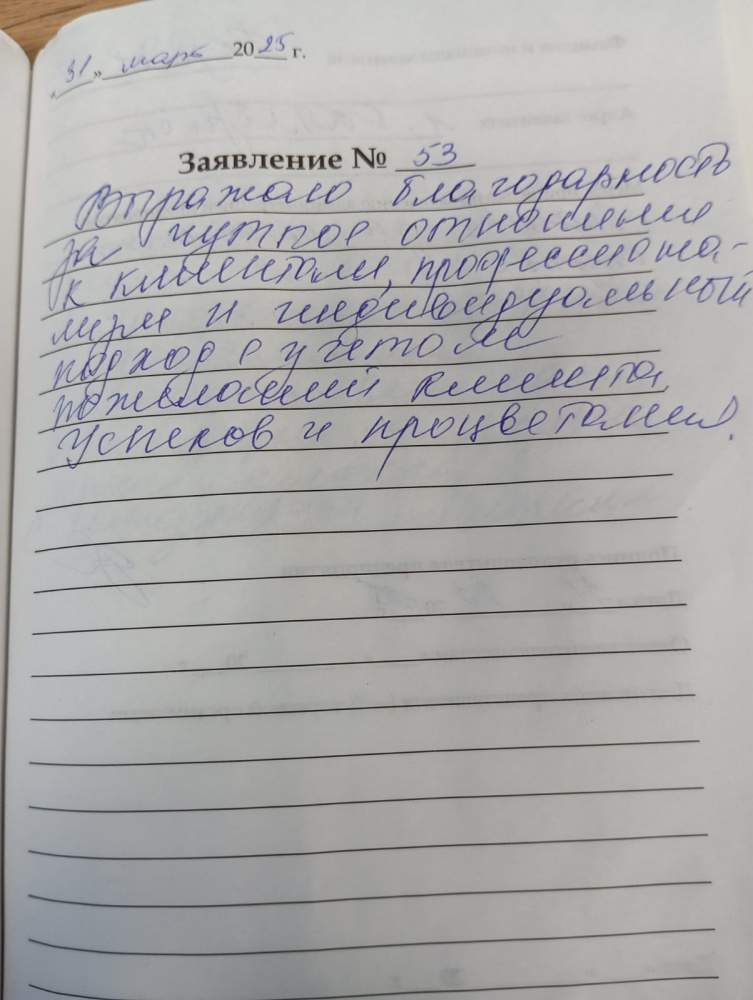 «31» март 2025 г.
Заявление № 53
Выражаю благодарность
за чуткое отношение
к клиентам, профессиона-
лизм и индивидуальный
подход с учетом
пожеланий клиента,
Успехов и процветания.